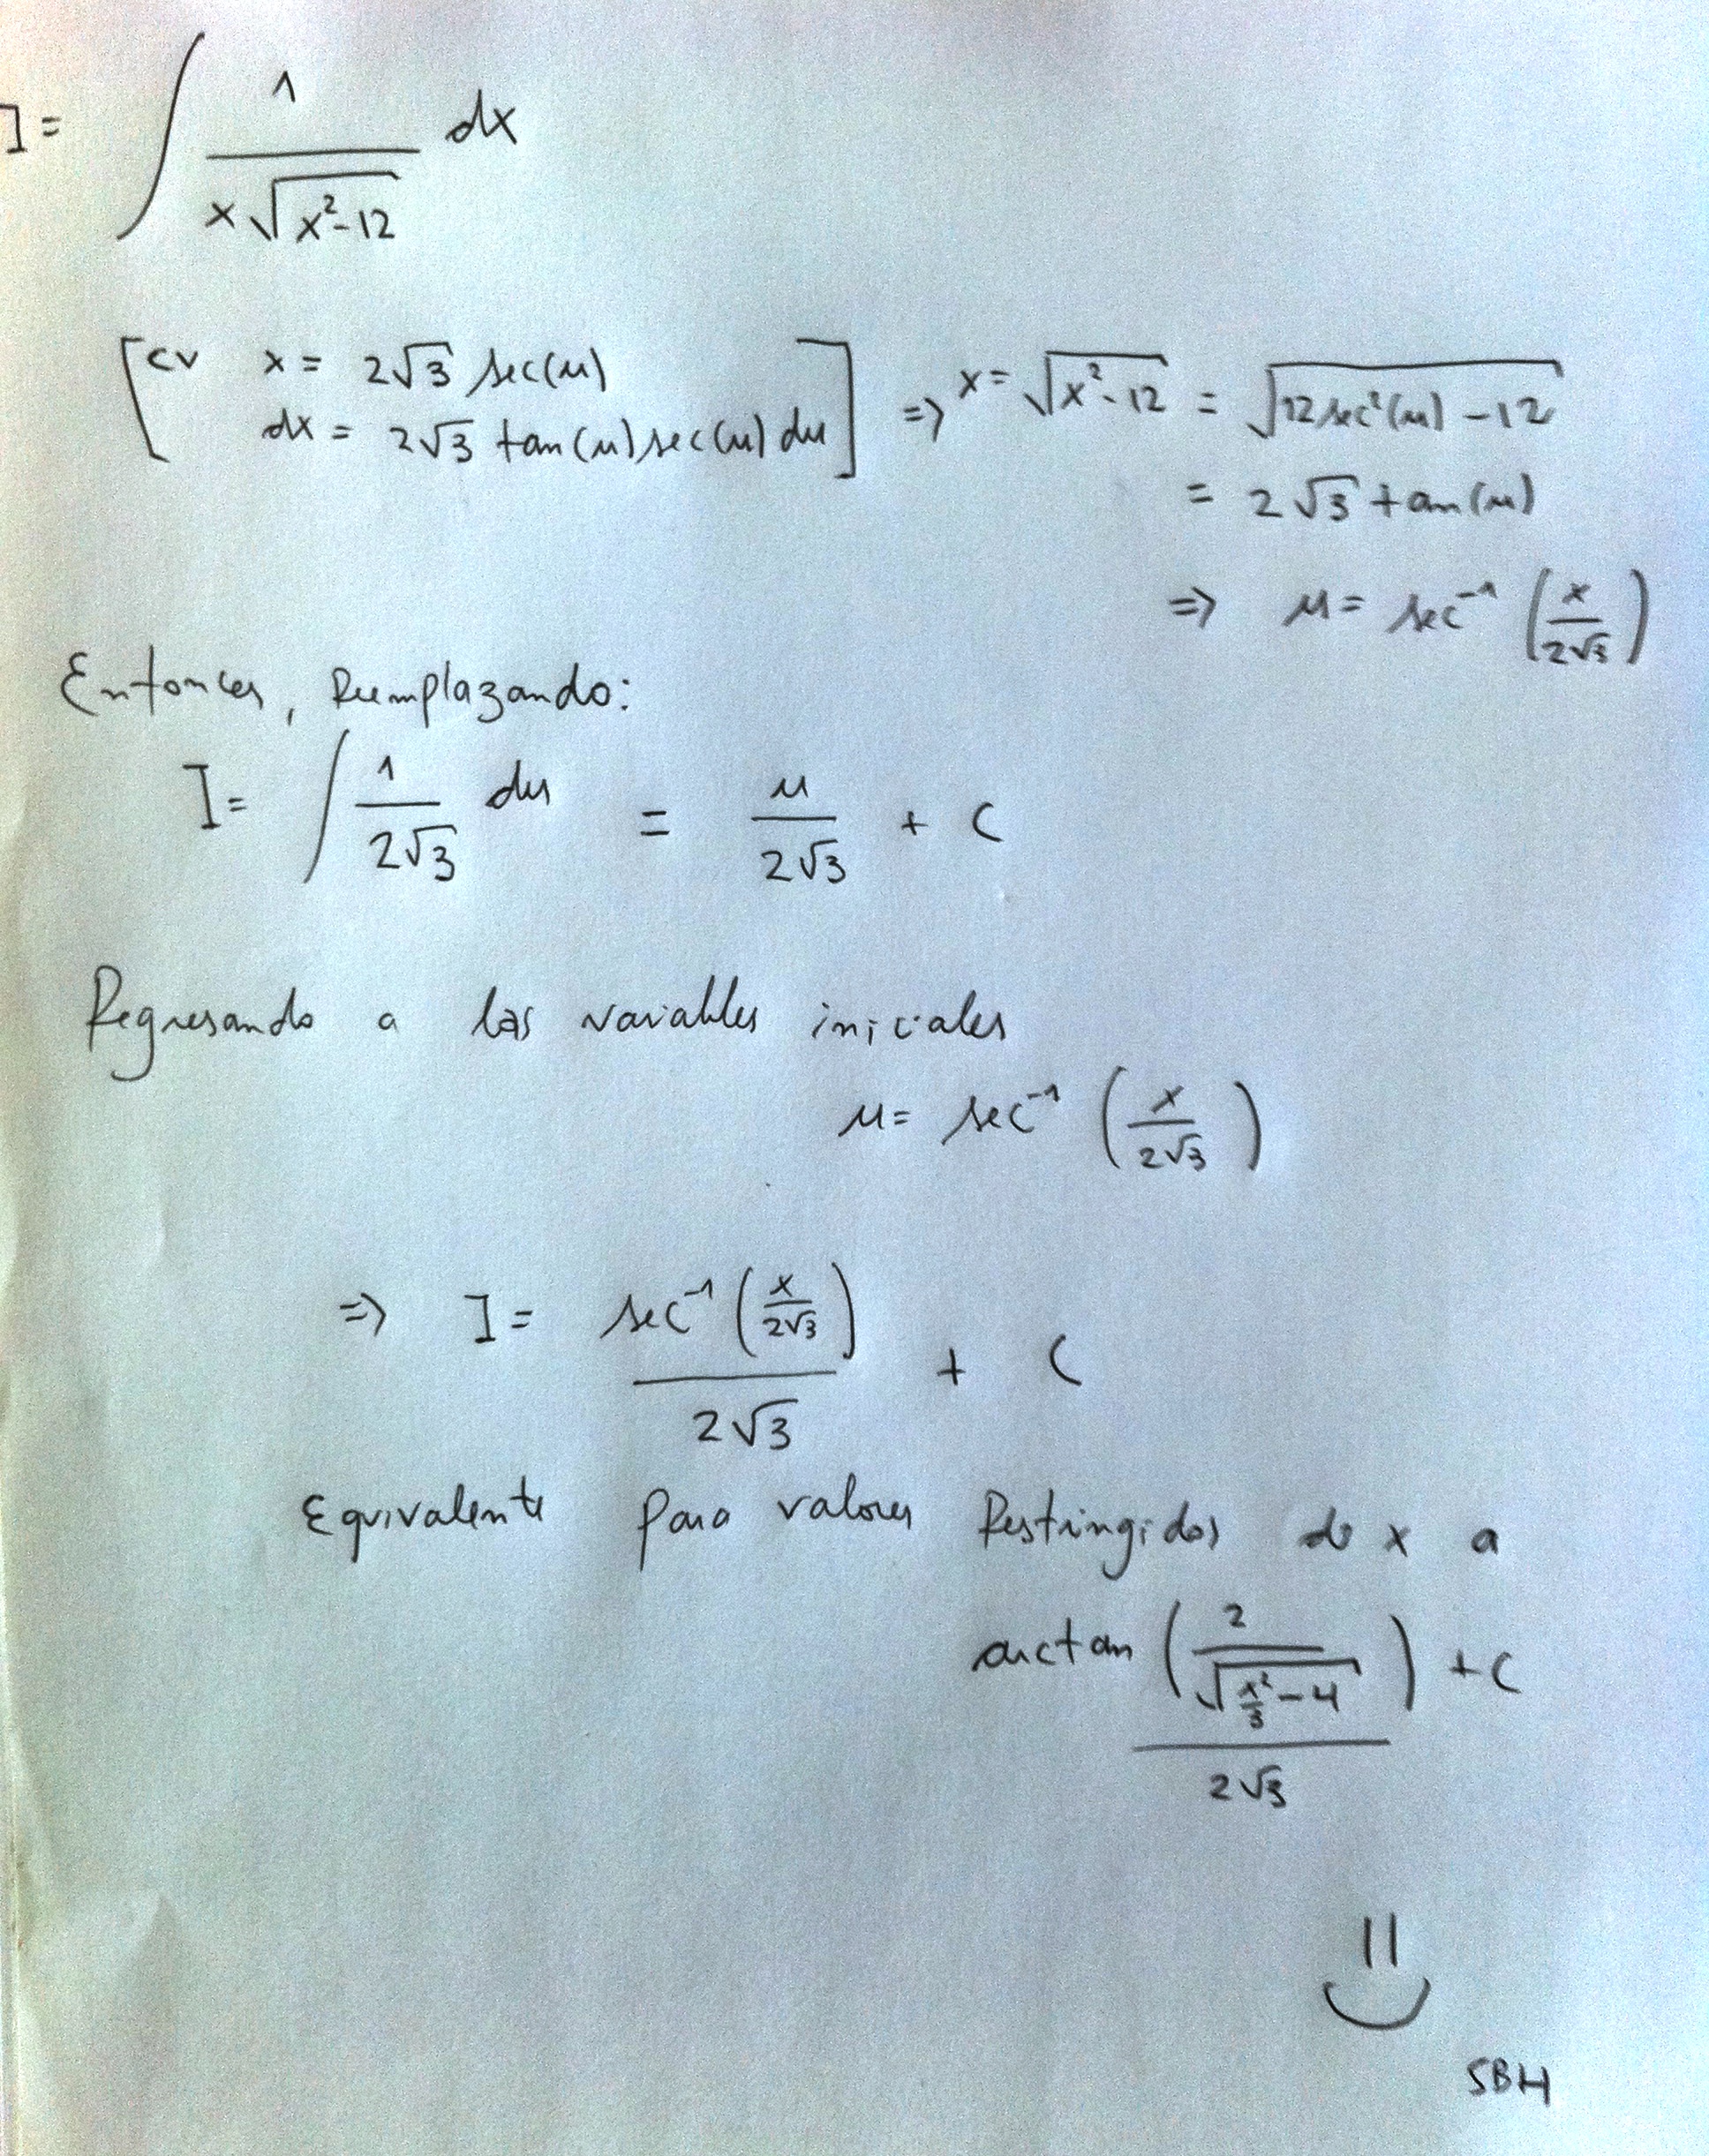 I = ∫ 1/(x√(x²-12)) dx
[cv x = 2√3 sec(u)
dx = 2√3 tan(u) sec(u) du] => x = √(x²-12) = √(12 sec²(u) - 12)
= 2√3 tan(u)
=> u = sec⁻¹ (x/(2√3))
Entonces, Reemplazando:
I = ∫ 1/(2√3) du = u/(2√3) + C
Regresando a las variables iniciales
u = sec⁻¹ (x/(2√3))
=> I = sec⁻¹(x/(2√3))/(2√3) + C
Equivalente para valores Restringidos de x a
arctan (2/√(x²/3 - 4))/(2√3) + C
SBH